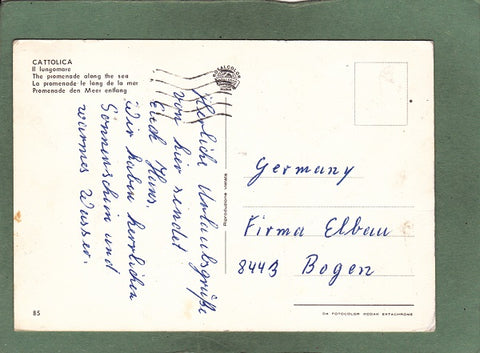 CATTOLICA
Il lungomare
The promenade along the sea
La promenade le long de la mer
Promenade den Meer entlang
Herrliche Urlaubsgrüße
von hier sendet
Euch Hans.
Wir haben herrlichen
Sonnenschein und
warmes Wasser.
Riproduzione vietata
Germany
Firma Elbau
8443 Bogen
85
DA FOTOCOLOR KODAK EKTACHROME